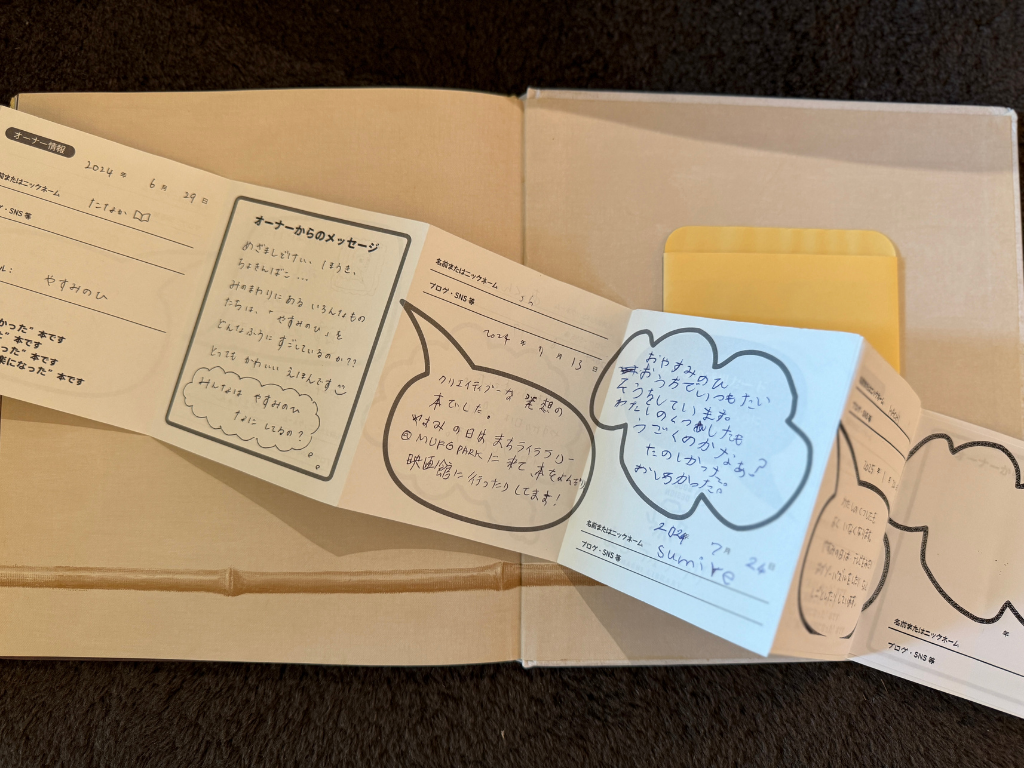 オーナー情報
2024 年 6 月 29 日
名前またはニックネーム
たなか
グ・SNS 等
ル:
やすみのひ
かった"本です
た"本です
った"本です
楽になった"本です
オーナーからのメッセージ
めざましどけい、ほうき、
ちょきんばこ…
みのまわりにある いろんなもの
たちは、「やすみのひ」を
どんなふうに すごしているのか??
とっても かわいい えほんです
みんなは やすみのひ
なに してるの?
名前またはニックネーム
ブログ・SNS 等
2024 年 7 月 13 日
クリエイティブな 発想の
本でした。
やすみの日は まちライブラリー
@MUFG PARK に来て 本をよんだり
映画館に行ったりしてます!
おやすみのひ
おうちでいつもたい
そうをしています。
わたしのくつしたも
うごくのかなあ?
たのしかった。
おしろかった。
名前またはニックネーム
2024 7月 24日
ブログ・SNS 等
sumire
名前またはニックネーム
年
ブログ・SNS 等